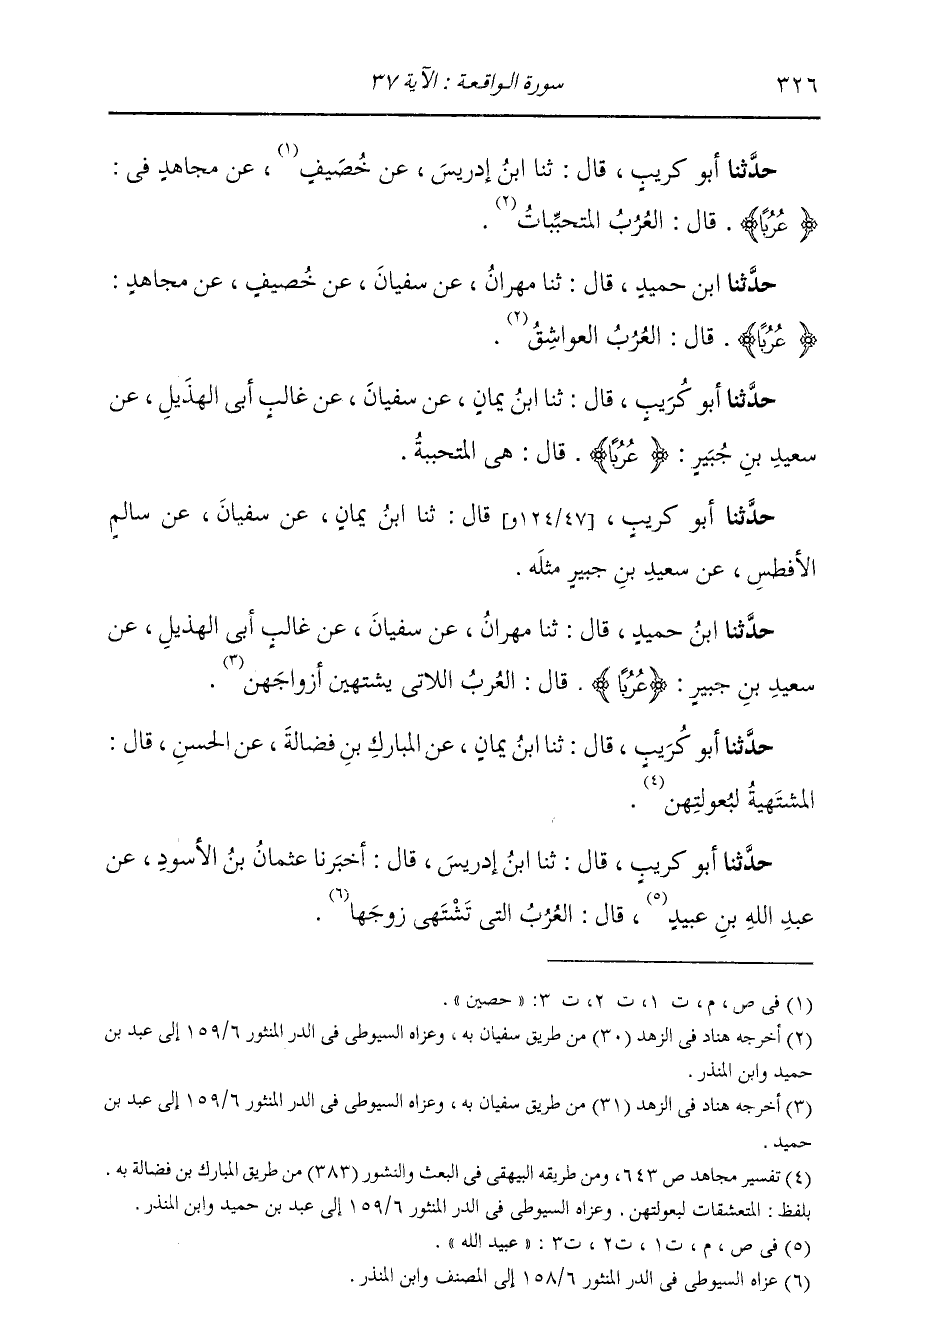 ٣٢٦ سورة الواقعة : الآية ٣٧
حدَّثنا أبو كريبٍ ، قال : ثنا ابنُ إدريسَ ، عن خُصَيفٍ(١) ، عن مجاهدٍ فى :
﴿ عُرُبًا﴾ . قال : العُرُبُ المتحبِّباتُ(٢) .
حدَّثنا ابن حميدٍ ، قال : ثنا مهرانُ ، عن سفيانَ ، عن خُصيفٍ ، عن مجاهدٍ :
﴿ عُرُبًا﴾ . قال : العُرُبُ العواشِقُ(٢) .
حدَّثنا أبو كُرَيبٍ ، قال : ثنا ابنُ يمانٍ ، عن سفيانَ ، عن غالبٍ أبى الهذَيلِ ، عن
سعيدِ بنِ جُبَيرٍ : ﴿ عُرُبًا﴾ . قال : هى المتحببةُ .
حدَّثنا أبو كريبٍ ، [١٢٤/٤٧و] قال : ثنا ابنُ يمانٍ ، عن سفيانَ ، عن سالمٍ
الأفطسِ ، عن سعيدِ بنِ جبيرٍ مثلَه .
حدَّثنا ابنُ حميدٍ ، قال : ثنا مهرانُ ، عن سفيانَ ، عن غالبٍ أبى الهذيلِ ، عن
سعيدِ بنِ جبيرٍ : ﴿عُرُبًا ﴾ . قال : العُربُ اللاتى يشتهين أزواجَهن(٣) .
حدَّثنا أبو كُرَيبٍ ، قال : ثنا ابنُ يمانٍ ، عن المباركِ بنِ فضالةَ ، عن الحسنِ ، قال :
المشتَهيةُ لبُعولتِهن(٤) .
حدَّثنا أبو كريبٍ ، قال : ثنا ابنُ إدريسَ ، قال : أخبَرنا عثمانُ بنُ الأسودِ ، عن
عبدِ اللهِ بنِ عبيدٍ(٥) ، قال : العُرُبُ التى تَشْتَهى زوجَها(٦) .
(١) فى ص ، م ، ت ١، ت ٢، ت ٣: « حصين » .
(٢) أخرجه هناد فى الزهد (٣٠) من طريق سفيان به ، وعزاه السيوطى فى الدر المنثور ١٥٩/٦ إلى عبد بن
حميد وابن المنذر .
(٣) أخرجه هناد فى الزهد (٣١) من طريق سفيان به ، وعزاه السيوطى فى الدر المنثور ١٥٩/٦ إلى عبد بن
حميد .
(٤) تفسير مجاهد ص ٦٤٣، ومن طريقه البيهقى فى البعث والنشور (٣٨٣) من طريق المبارك بن فضالة به .
بلفظ : المتعشقات لبعولتهن . وعزاه السيوطى فى الدر المنثور ١٥٩/٦ إلى عبد بن حميد وابن المنذر .
(٥) فى ص ، م ، ت١ ، ت٢ ، ت٣ : « عبيد الله » .
(٦) عزاه السيوطى فى الدر المنثور ١٥٨/٦ إلى المصنف وابن المنذر .